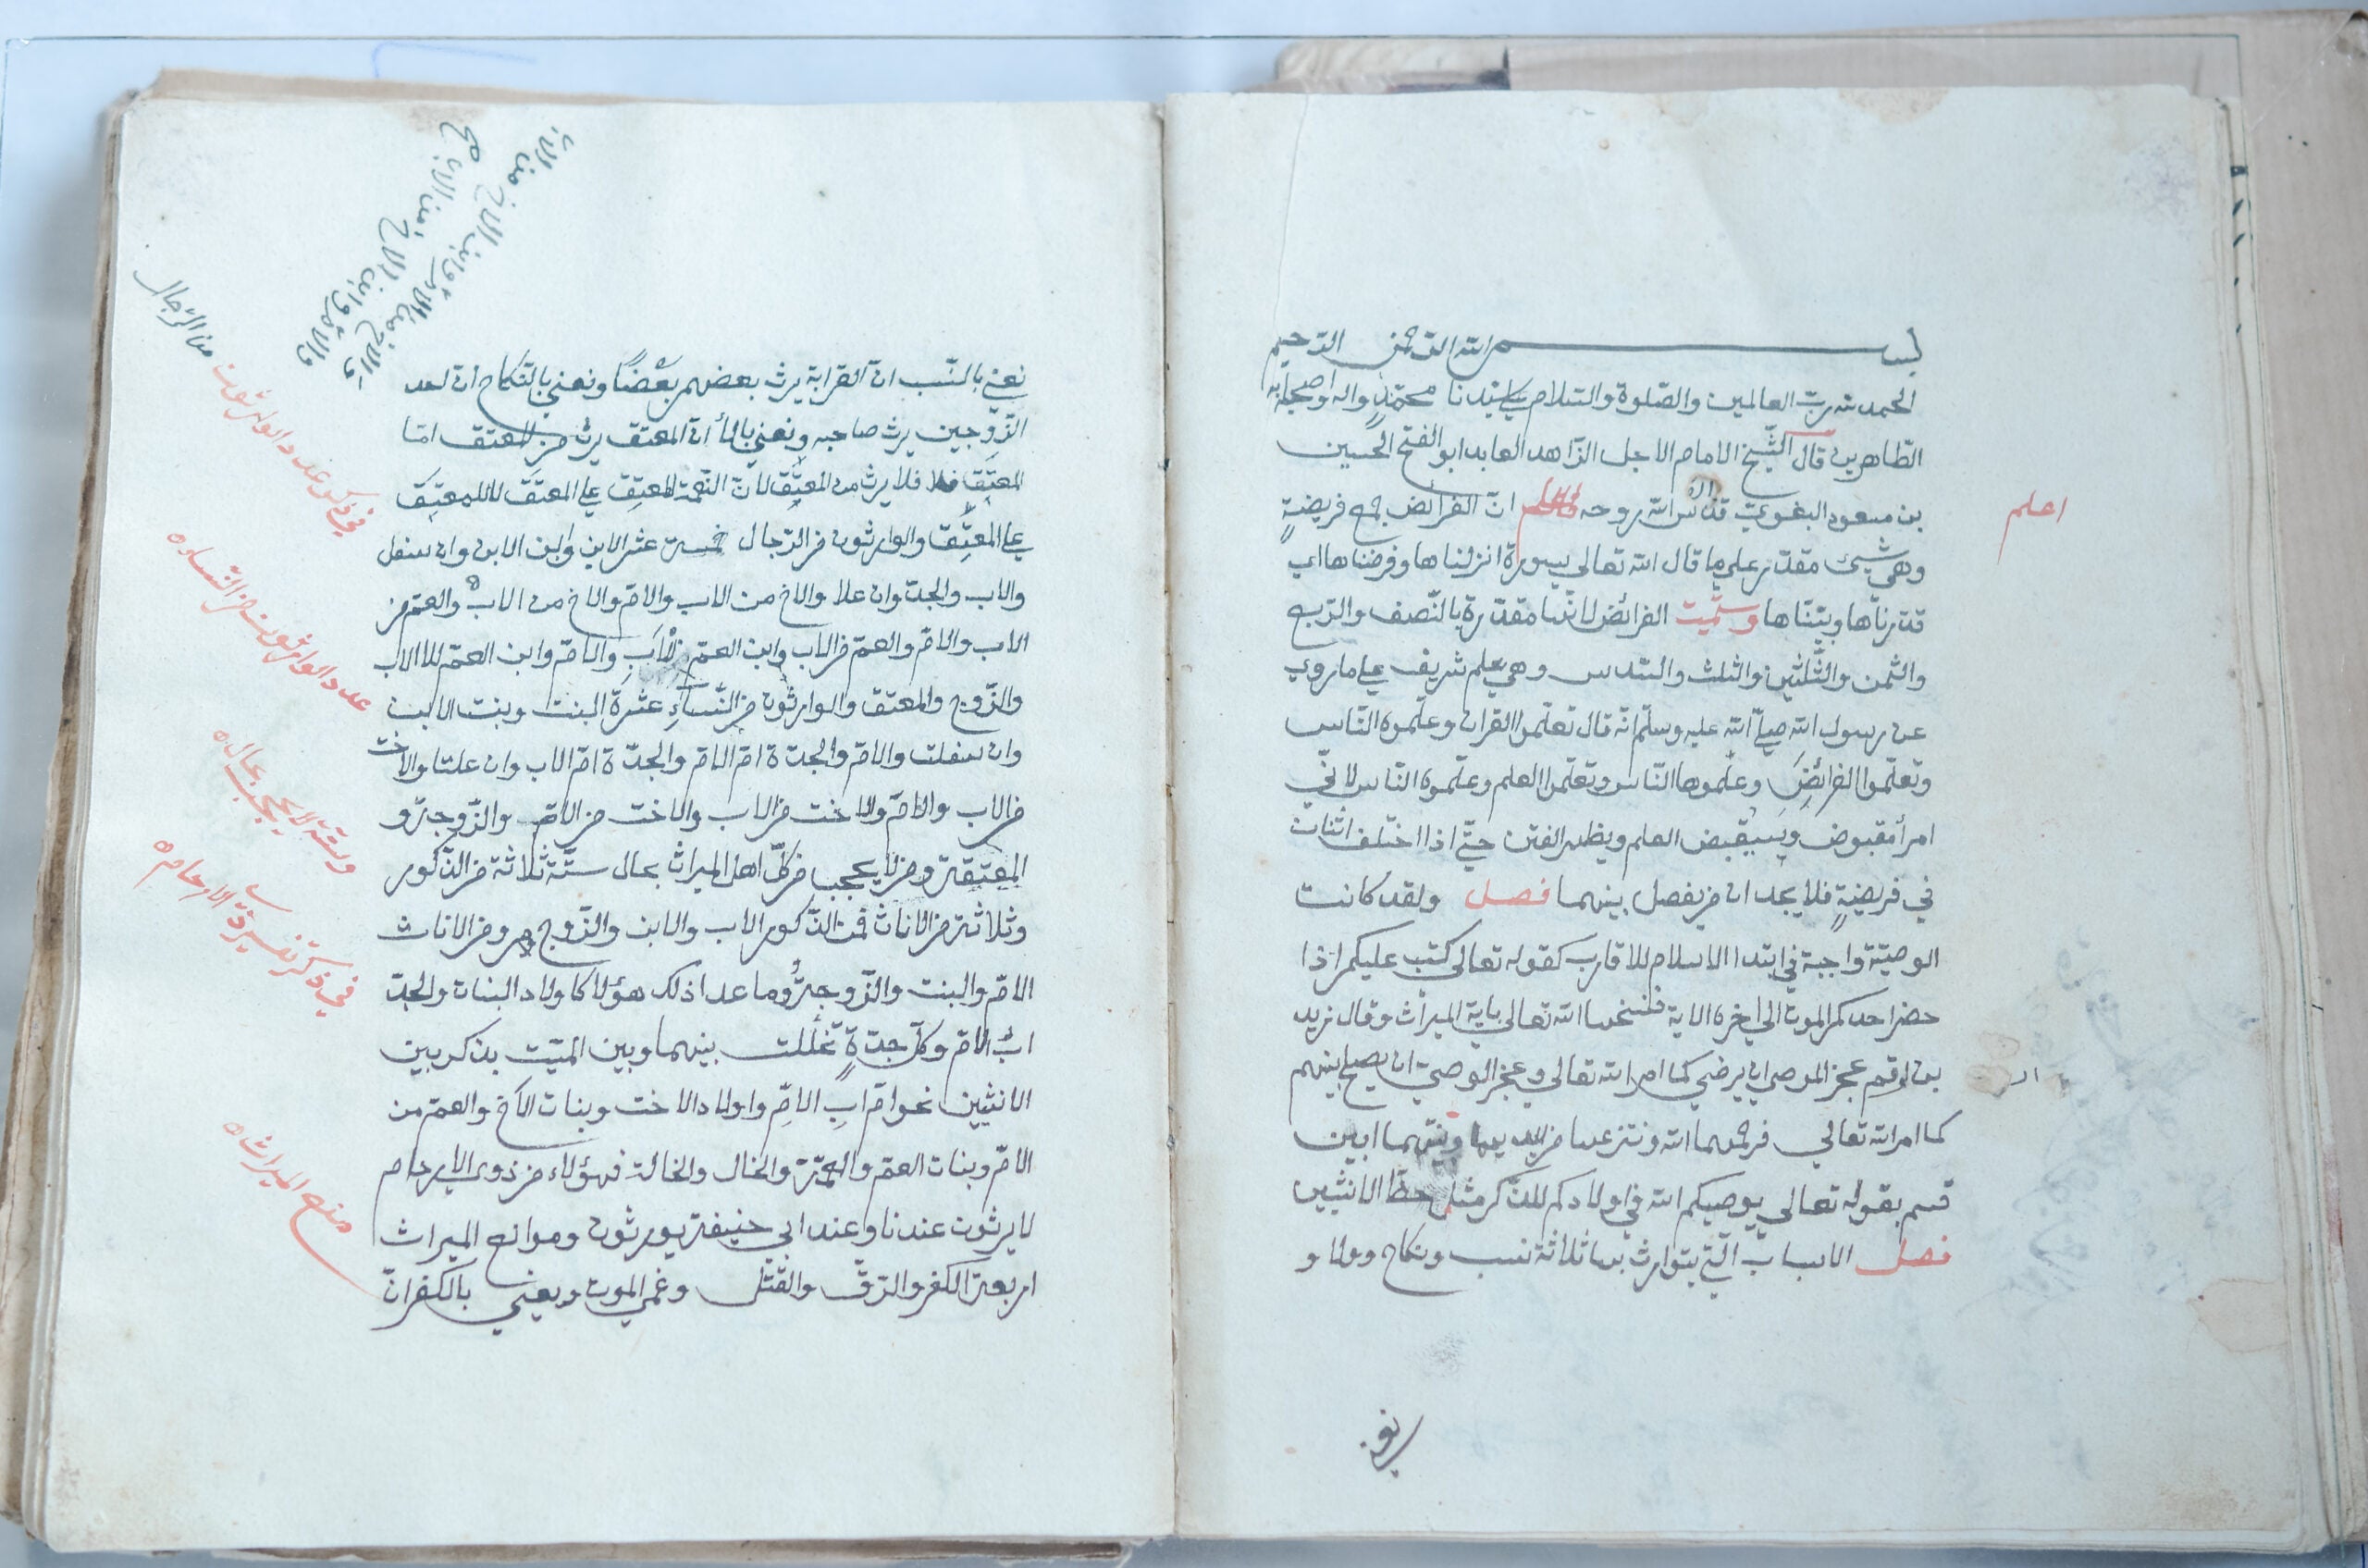 بسم الله الرحمن الرحيم
الحمد لله رب العالمين والصلوة والسلام علي سيدنا محمد واله واصحابه
الطاهرين قال الشيخ الامام الاجل الزاهد العابد ابو الفتح الحسين
بن مسعود البغوي قدس الله روحه انّ الفرائض جمع فريضةٍ
اعلم
وهي شيئ مقدر علي ما قال الله تعالي سورة انزلناها وفرضناها اي
قدرناها وبيّنّاها وسمّيت الفرائض لانّها مقدّرة بالنّصف والرّبع
والثمن والثّلثين والثلث والسّدس وهي علم شريف علي ما روي
عن رسول الله صلّي الله عليه وسلّم انّه قال تعلّموا القران وعلّموه النّاس
وتعلّموا الفرائضَ وعلّموها النّاس وتعلّموا العلم وعلّموه النّاس لانّي
امرأ مقبوض وسيقبض العلم ويظهر الفتن حتّي اذا اختلف اثنان
في فريضةٍ فلا يجدان من يفصل بينهما فصل ولقد كانت
الوصيّة واجبة في ابتدا الاسلام للاقارب كقوله تعالي كتب عليكم اذا
حضر احدكم الموت الي اخره الاية فنسخها الله تعالي باية الميراث وقال زيد
بن ارقم عجز الموصي ان يرضي كما امر الله تعالي وعجز الوصيّ ان يصلح بينهم
كما امر الله تعالي فرحمهما الله ونتزعها من يديهما وبينهما ابين
قسم بقوله تعالي يوصيكم الله في اولادكم للذّكر مثل حظّ الانثيين
فصل الاسباب الّتي يتوارث بها ثلاثة نسب ونكاح وولا و
نعني
نعني بالنّسب انّ القرابة يرث بعضهم بعضًا ونعني بالنّكاح انّ احد
الزّوجين يرث صاحبه ونعني بالولأ انّ المعتق يرث من المعتق امّا
المعتَق فلا يرث من المعتِق لانّ النّعمة للمعتِق علي المعتَق لا للمعتَق
علي المعتِق والوارثون من الرّجال خمسة عشر الابن وابن الابن وان سفل
والاب والجدّ وان علا والاخ من الاب والامّ والاخ من الاب والعم من
الاب والامّ والعمّ من الاب وابن العمّ من الاب والامّ وابن العمّ للاب
والزّوج والمعتق والوارثون من النّسآءِ عشرة البنت وبنت الابن
وان سفلت والامّ والجدّة امّ الامّ والجدّة امّ الاب وان علتا والاخت
من الاب والامّ والاخت من الاب والاخت من الامّ والزّوجة و
المعتقة ومن لا يحجب من كلّ اهل الميراث بحال ستّة ثلاثة من الذّكور
وثلاثة من الاناث فمن الذّكور الاب والابن والزّوج ومن الاناث
الامّ والبنت والزّوجة وما عدا ذلك هؤلا كاولاد البنات والجدّ
اب الامّ وكلّ جدّةٍ تخللت بينهما وبين الميّت بذكر بين
الانثيين نحو امّ ابِ الامّ واولاد الاخت وبنات الاخ والعمّ من
الامّ وبنات العمّ والعمّة والخال والخالة فهؤلاء من ذوي الارحام
لا يرثون عندنا وعند ابي حنيفة يورثون وموانع الميراث
اربعة الكفر والرّق والقتل وغمّي الموت ويعني بالكفر انّ
من الاب
والامّ وابن الاخ
في ذكر عدد الوارثون من الرّجال
عدد الوارثون من النّساء
وستّة لا يحجب بحال
في ذكر تفسير ذوي الارحام
منع الميراث